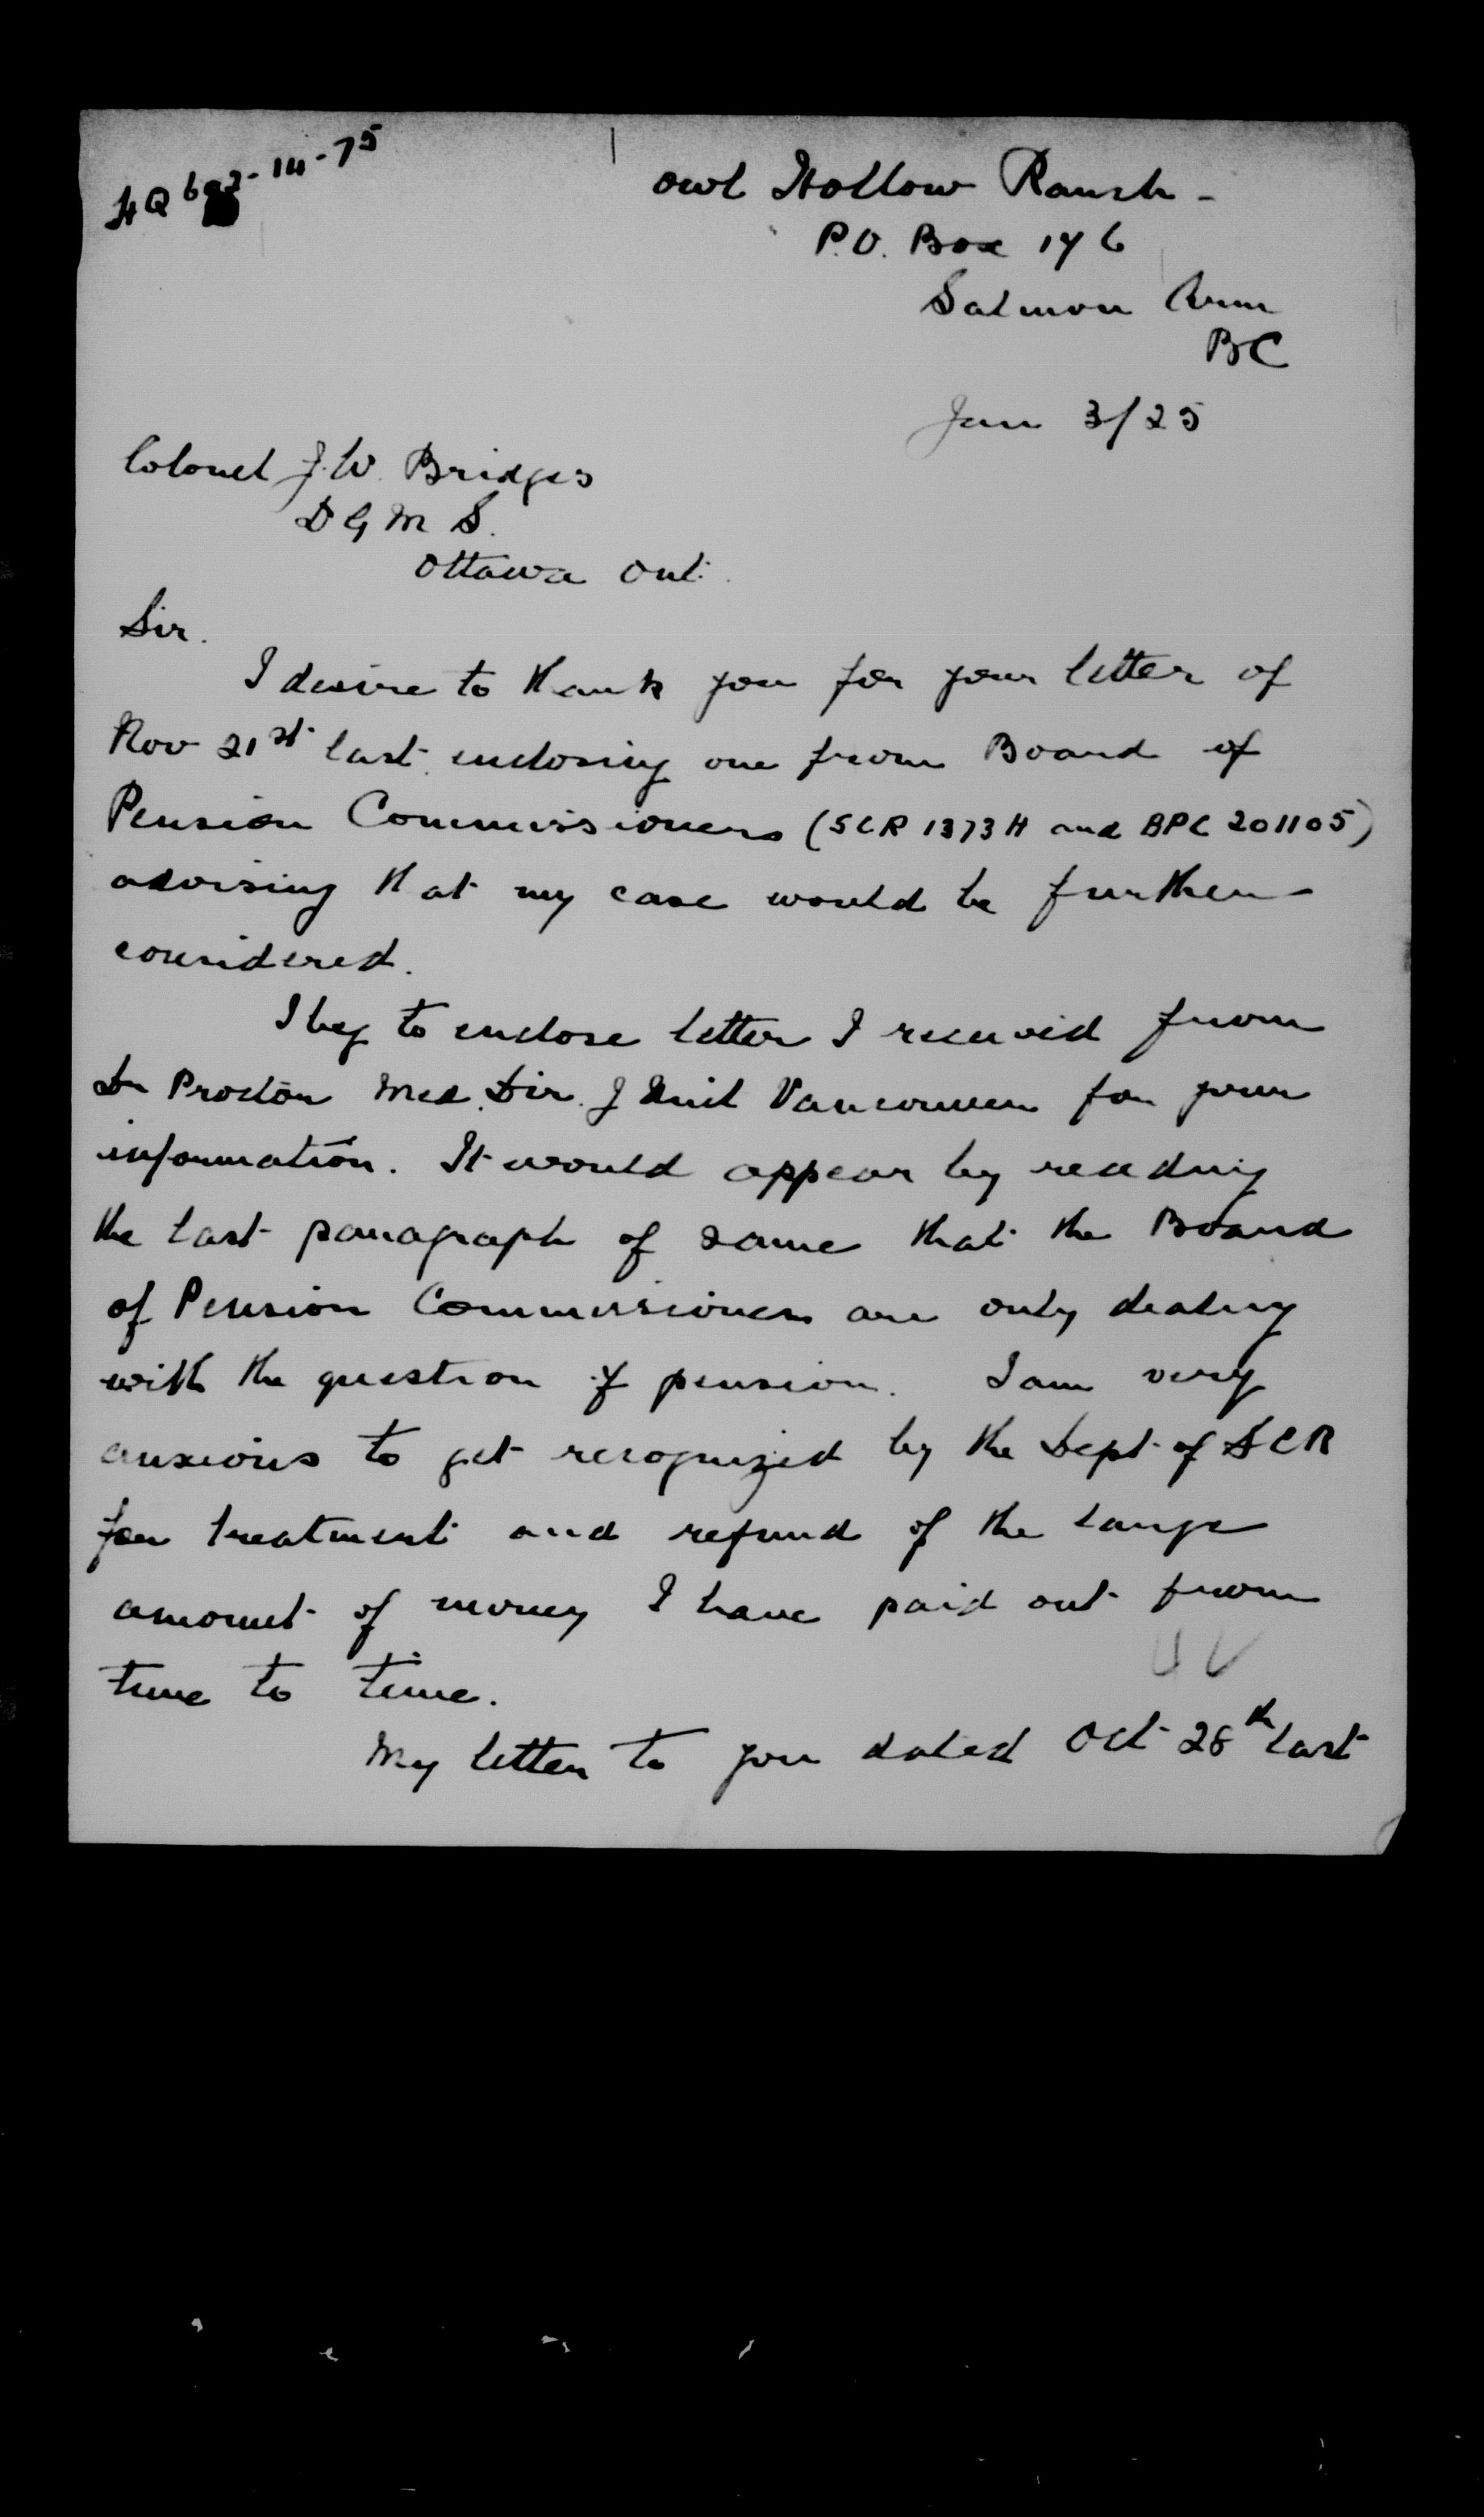 HQ 6 - 14 - 75
Owl Hollow Ranch -
P.O. Box 176
Salmon Arm
BC
Jan 3/25
Colonel J.W. Bridges
D G M S.
Ottawa Ont.
Sir.
I desire to thank you for your letter of
Nov 21st last enclosing one from Board of
Pension Commissioners (SCR 1373 H and BPC 201105)
advising that my case would be further
considered.
I beg to enclose letter I received from
Dr Proctor Med. Dir. J Unit Vancouver for your
information. It would appear by reading
the last paragraph of same that the Board
of Pension Commissioners are only dealing
with the question of pension. I am very
anxious to get recognized by the Dept of SCR
for treatment and refund of the large
amount of money I have paid out from
time to time.
My letter to you dated Oct 28th last